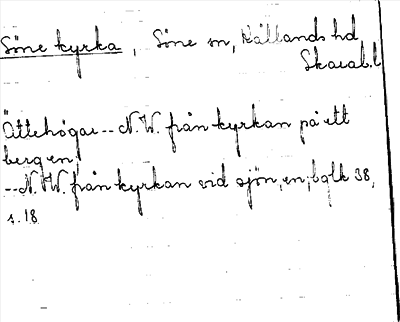 Söne kyrka, Söne sn, Kållands hd
Skarab.l
Ättehögar -- N.W. från kyrkan på ett
berg en,
-- N.W. från kyrkan vid sjön, en, balk 38,
s. 18